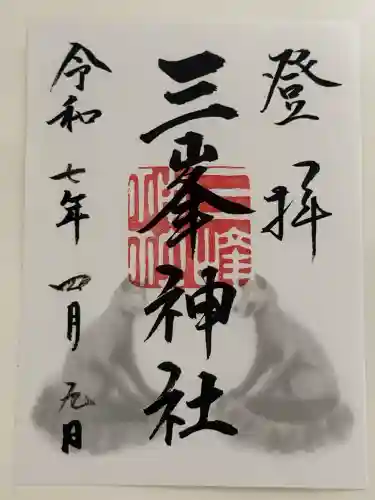 登拝
三峯神社
令和七年四月九日